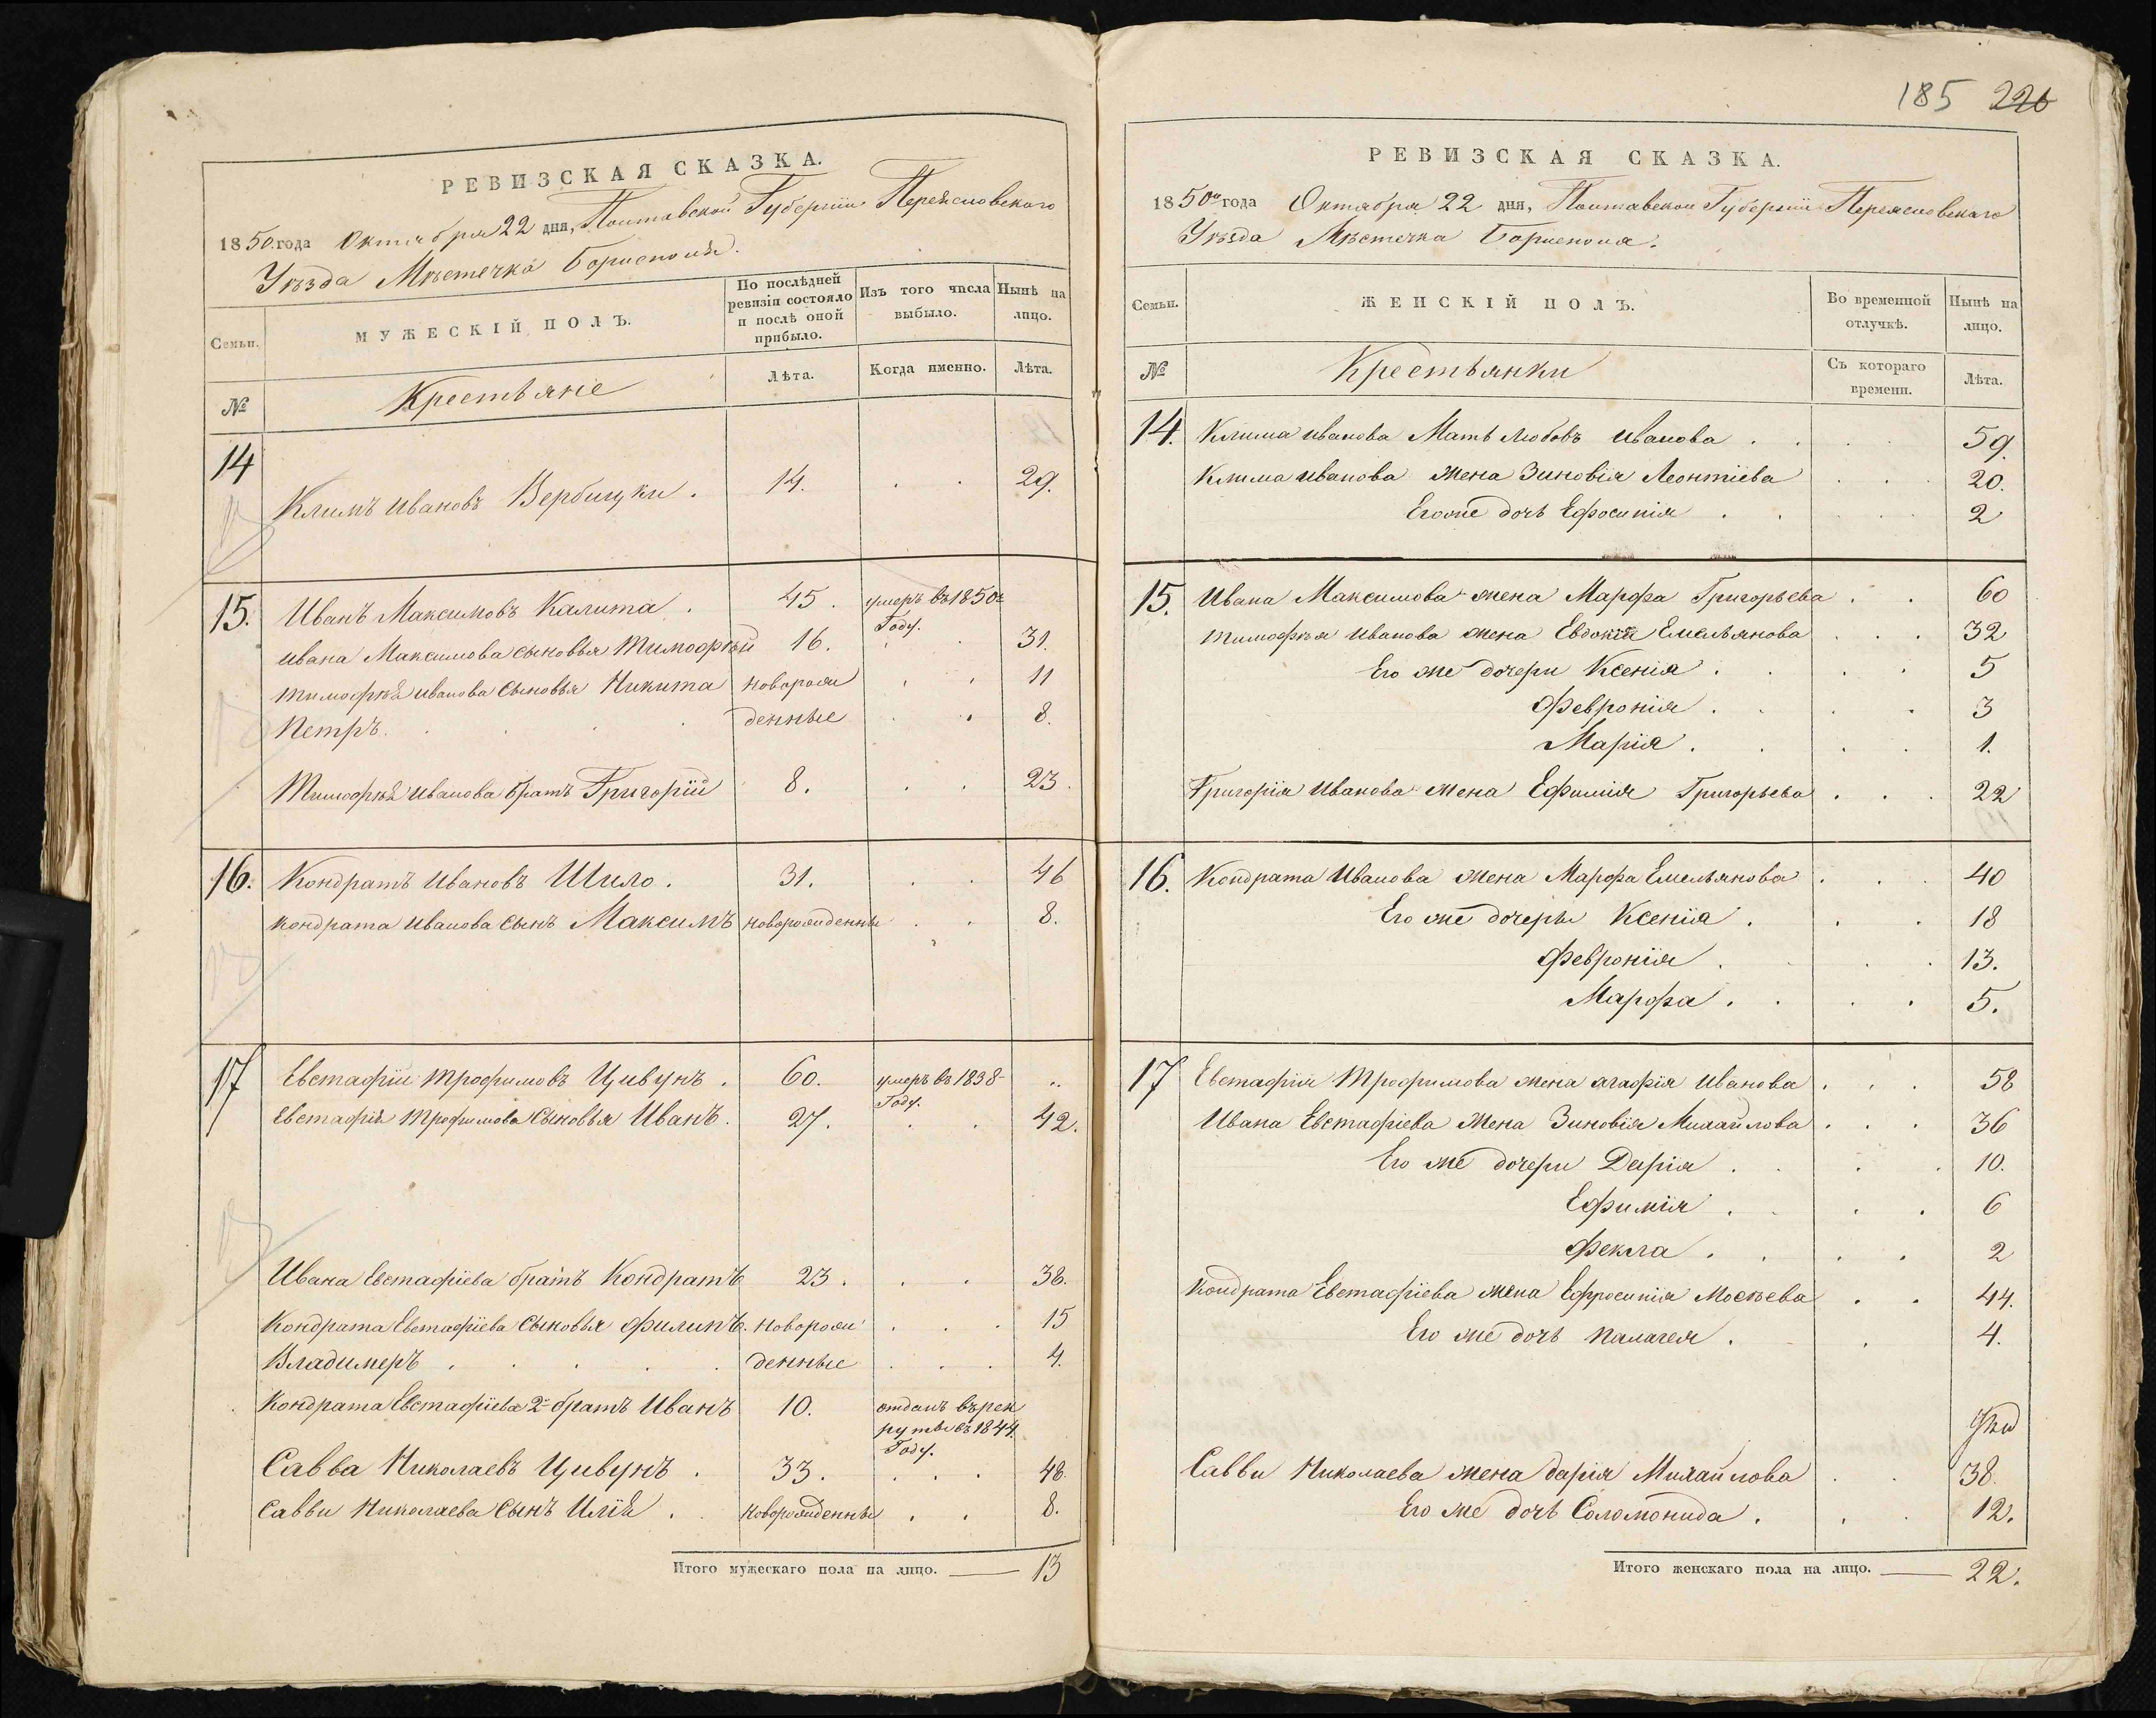 185 226
РЕВИЗСКАЯ СКАЗКА.
1850 года Октября 22 дня, Полтавской Губерніи Переясловского
Уѣзда Мѣстечка Борисполя.
Семьи.
МУЖЕСКІЙ ПОЛЪ.
По послѣдней ревизіи состояло и послѣ оной прибыло.
Изъ того числа выбыло.
Нынѣ на лицо.
№
Крестьяне
Лѣта.
Когда именно.
Лѣта.
14
Климъ Ивановъ Вербицки. 14. 29.
15. Иванъ Максимовъ Калита. 45. умеръ въ 1850м
Году.
Ивана Максимова сыновья Тимофѣй 16. 31.
Тимофѣя Иванова Сыновья Никита новорож 11
Петръ. денные 8.
Тимофѣя Иванова братъ Григорій 8. 23.
16. Кондратъ Ивановъ Шило. 31. 46
Кондрата Иванова Сынъ Максимъ новорожденны 8.
17 Евстафіи Трофимовъ Цивунъ. 60. умеръ въ 1838 ..
Году.
Евстафія Трофимова Сыновья Иванъ. 27. 42.
Ивана Евстафіева братъ Кондратъ 23. 38.
Кондрата Евстафіева Сыновья Филипъ. новорож 15
Владимеръ. денные 4.
Кондрата Евстафіева 2й братъ Иванъ 10. отданъ въ рек
руты въ 1844.
Году.
Савва Николаевъ Цивунъ. 33. 48.
Саввы Николаева Сынъ Илія. новорожденны 8.
Итого мужескаго пола на лицо. — 13
РЕВИЗСКАЯ СКАЗКА.
1850го года Октября 22 дня, Полтавской Губерніи Переясловскаго
Уѣзда Мѣстечка Борисполя.
Семьи.
ЖЕНСКІЙ ПОЛЪ.
Во временной отлучкѣ.
Нынѣ на лицо.
№
Крестьянки
Съ котораго времени.
Лѣта.
14. Клима Иванова Мать Любовъ Иванова. 59.
Клима Иванова жена Зиновія Леонтіева 20.
Егоже дочь Ефросинія 2
15. Ивана Максимова жена Марфа Григорьева. 60
Тимофѣя Иванова жена Евдокія Емельянова 32
Его же дочери Ксенія. 5
Февронія. 3
Марія. 1.
Григорія Иванова жена Ефимія Григорьева. 22
16. Кондрата Иванова жена Марфа Емельянова. 40
Его же дочеры Ксенія. 18
Февронія. 13.
Марфа. 5.
17 Евстафія Трофимова жена Агафія Иванова. 58
Ивана Евстафіева жена Зиновія Михайлова. 36
Его же дочери Дарія. 10.
Ефимія. 6
Фекла. 2
Кондрата Евстафіева жена Ефросинія Мосѣева 44.
Его же дочь Палагея. 4.
Саввы Николаева жена Дарія Михайлова 38.
Его же дочь Соломонида. 12.
Итого женскаго пола на лицо. — 22.